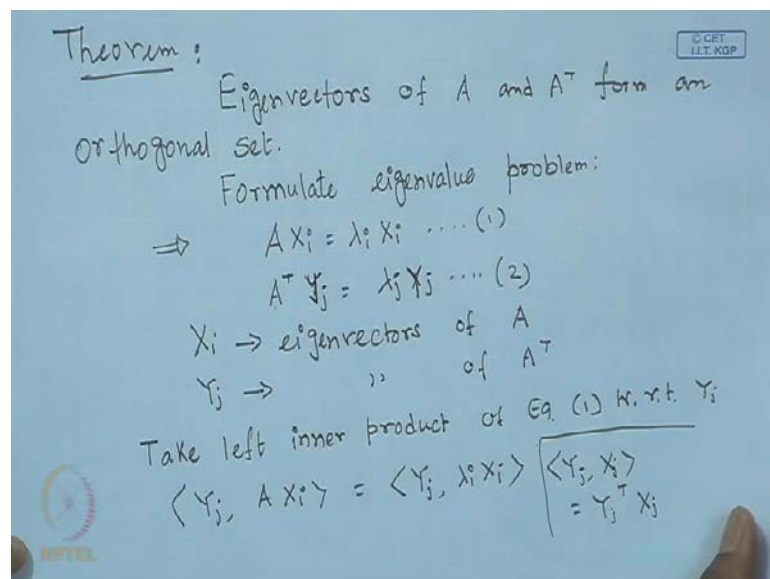 Theorem :
© CET
I.I.T. KGP
Eigenvectors of A and Aᵀ form an
orthogonal set.
Formulate eigenvalue problem:
⇒ A Xi = λi Xi .... (1)
Aᵀ Yj = λj Yj .... (2)
Xi → eigenvectors of A
Yj → ,, of Aᵀ
Take left inner product of Eq. (1) W.r.t. Yj
⟨Yj, A Xi⟩ = ⟨Yj, λi Xi⟩
⟨Yj, Xj⟩
= Yjᵀ Xj
NPTEL